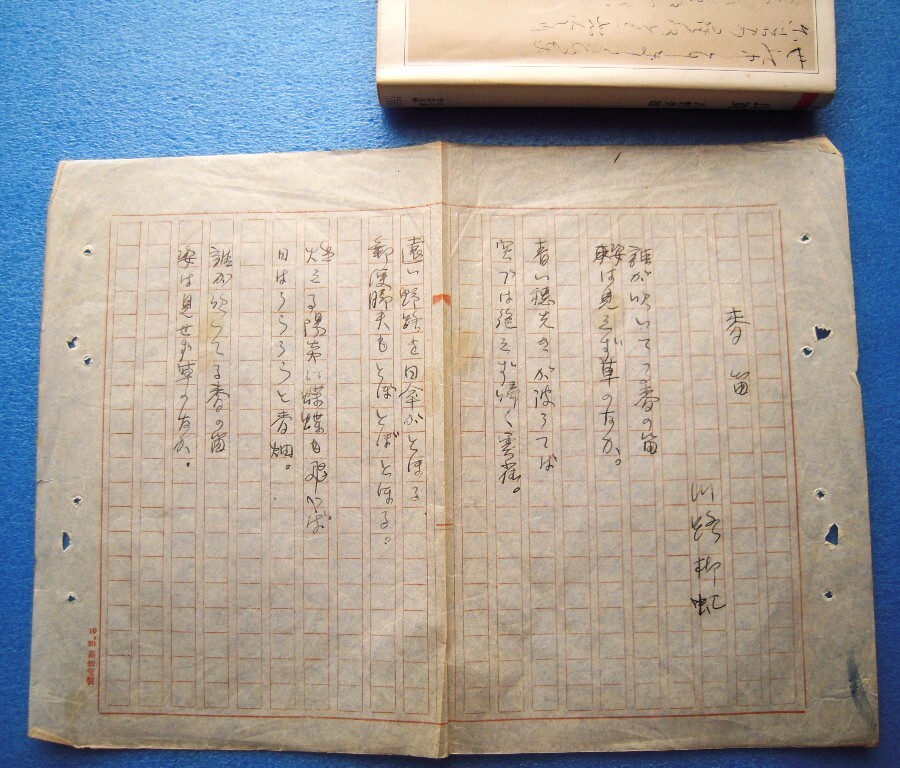 麦笛
川路柳虹
誰が吹いてる麦の笛
姿は見えず草のなか。
青い穂先きが波うてば
空では絶えず啼く雲雀。
遠い野路を日傘がとほる
郵便脚夫もとぼとぼとほる。
燃える陽炎に蝶蝶も飛べば
日はうらうらと麦畑。
誰が吹いてる麦の笛
姿は見せず草のなか。